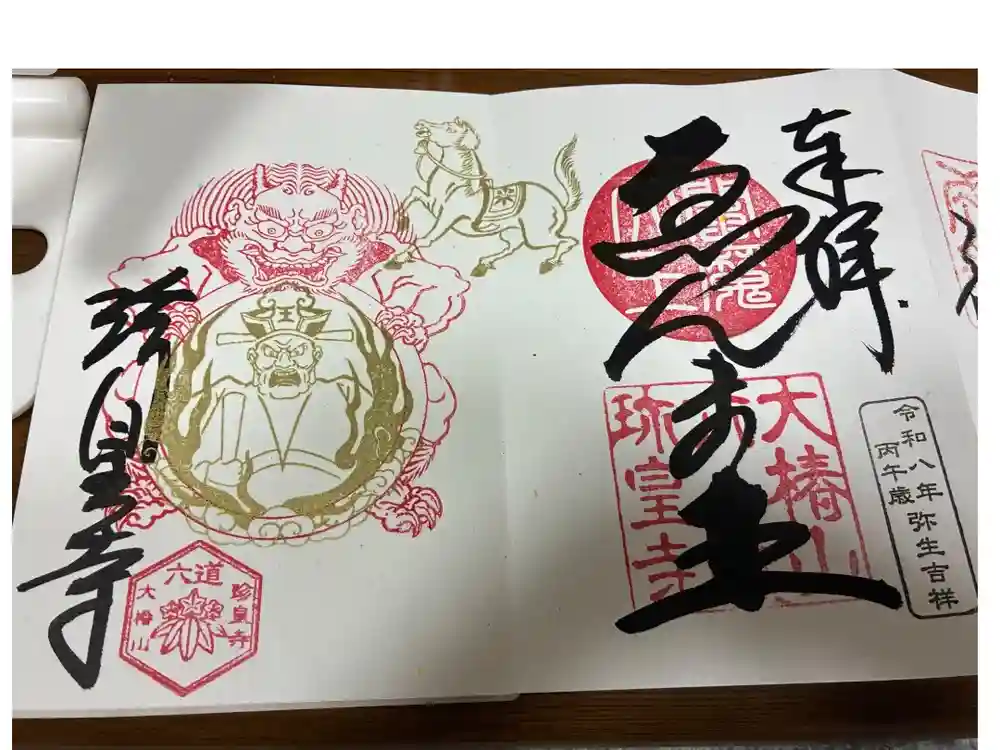 奉拝
ゑんま王
大椿山
珎皇寺
令和八年弥生吉祥
丙午歳
王
珍皇寺
六道
珍皇寺
大椿山